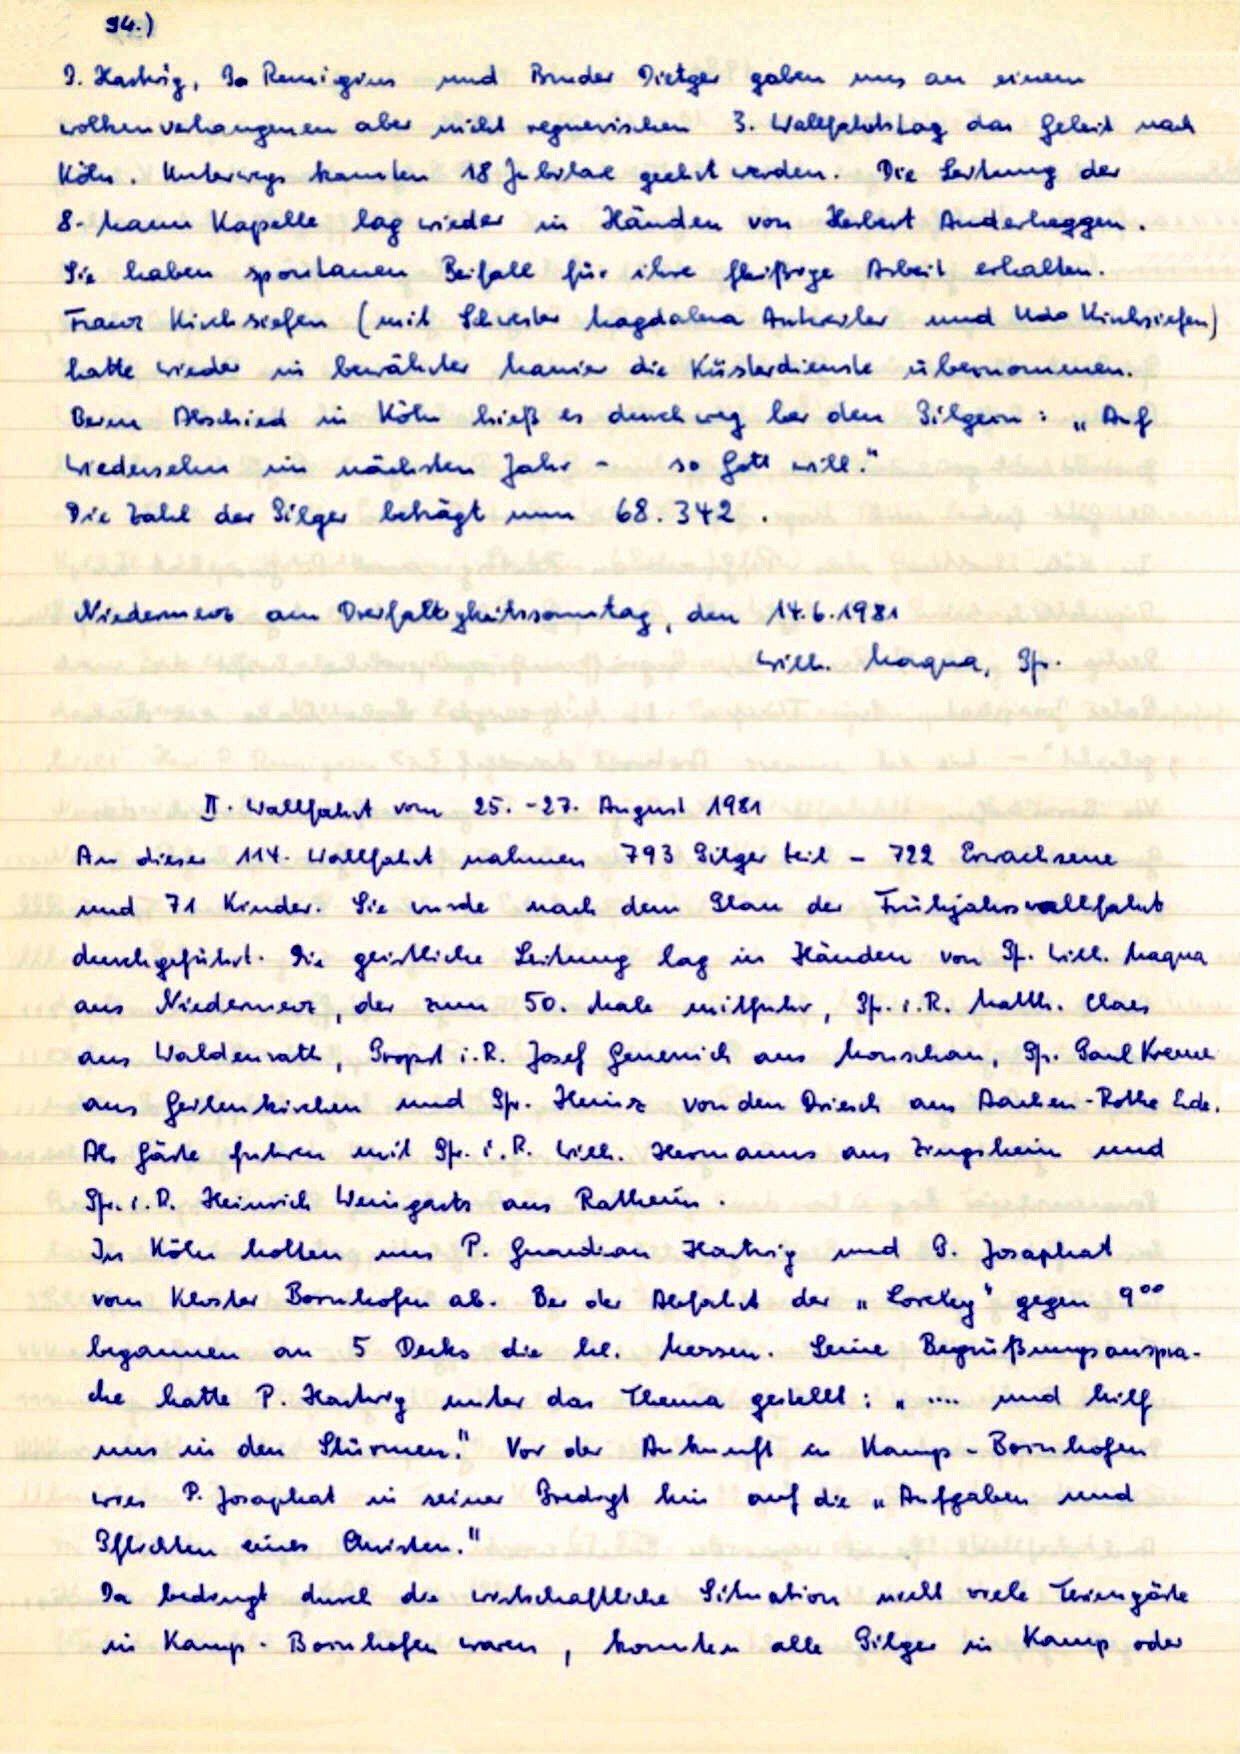 94.)
P. Hartwig, Pa Remigius und Bruder Dietger gaben uns an einem
wolkenverhangenen aber nicht regnerischen 3. Wallfahrtstag das Geleit nach
Köln. Unterwegs konnten 18 Jubilare geehrt werden. Die Leitung der
8-Mann Kapelle lag wieder in Händen von Herbert Anderheggen.
Sie haben spontanen Beifall für ihre fleißige Arbeit erhalten.
Franz Kirchsiefen (mit Schwester Magdalena Antweiler und Udo Kirchsiefen)
hatte wieder in bewährter Manier die Küsterdienste übernommen.
Beim Abschied in Köln hieß es durchweg bei den Pilgern: „Auf
Wiedersehn im nächsten Jahr - so Gott will."
Die Zahl der Pilger beträgt nun 68.342.
Niedermerz am Dreifaltigkeitssonntag, den 14.6.1981
Wilh. Maqua, Pfr.
II. Wallfahrt vom 25.-27. August 1981
An dieser 114. Wallfahrt nahmen 793 Pilger teil - 722 Erwachsene
und 71 Kinder. Sie wurde nach dem Plan der Frühjahrswallfahrt
durchgeführt. Die geistliche Leitung lag in Händen von Pf. Wilh. Maqua
aus Niedermerz, der zum 50. Male mitfuhr, Pfr. i.R. Matth. Claes
aus Waldenrath, Propst i.R. Josef Genenich aus Monschau, Pfr. Paul
aus Geilenkirchen und Pfr. Heinz von den Driesch aus Aachen-Rothe Erde.
Als Gäste fuhren mit Pfr. i.R. Wilh. Hermanns aus Zingsheim und
Pfr. i.R. Heinrich Weingarts aus Ratheim.
In Köln holten uns P. Guardian Hartwig und P. Josaphat
vom Kloster Bornhofen ab. Bei der Abfahrt der „Loreley" gegen 9⁰⁰
begannen an 5 Decks die hl. Messen. Seine Begrüßungsanspra-
che hatte P. Hartwig unter das Thema gestellt: „.... und hilf
uns in den Stürmen." Vor der Ankunft in Kamp-Bornhofen
wies P. Josaphat in seiner Predigt hin auf die „Aufgaben und
Pflichten eines Christen."
Da bedingt durch die wirtschaftliche Situation nicht viele Feriengäste
in Kamp-Bornhofen waren, konnten alle Pilger in Kamp oder